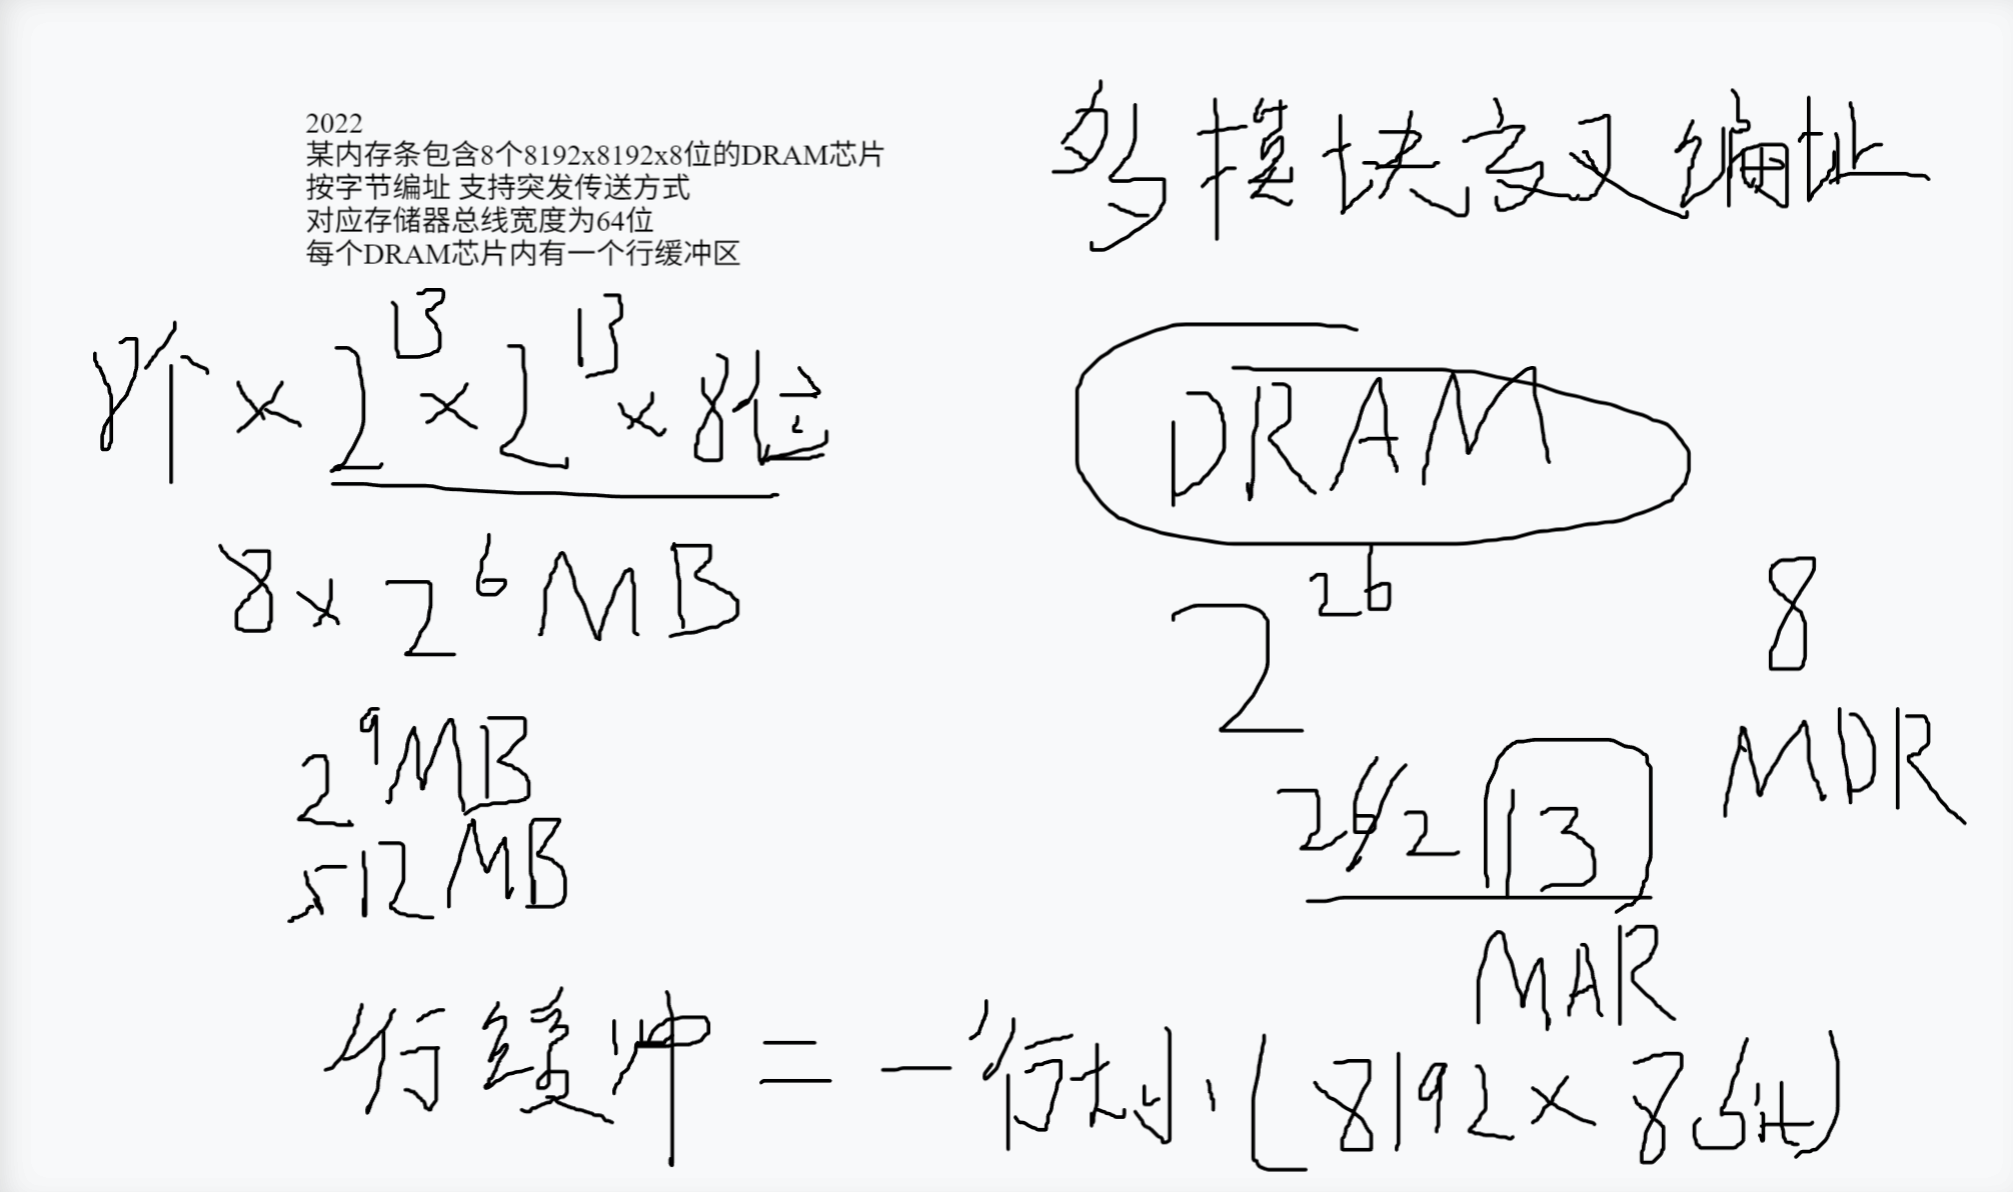 2022
某内存条包含8个8192x8192x8位的DRAM芯片
按字节编址 支持突发传送方式
对应存储器总线宽度为64位
每个DRAM芯片内有一个行缓冲区
多模块交叉编址
8个×2^13×2^13×8位
DRAM
8×2^6MB
2^26
8
2^9MB
MDR
26/2 13
512MB
MAR
行缓冲=一行大小(8192×8bit)